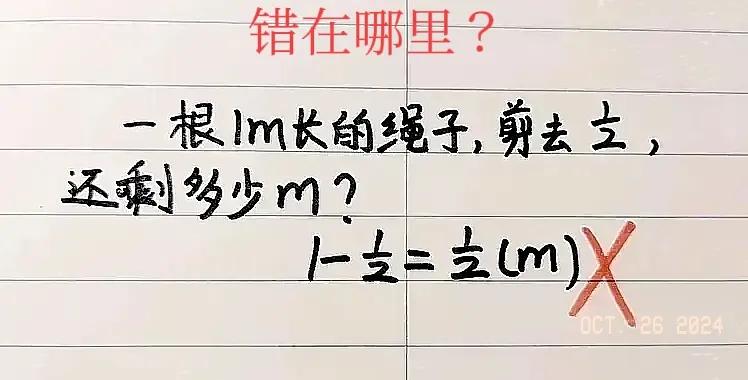 错在哪里？
一根1m长的绳子,剪去1/2,
还剩多少m?
1-1/2=1/2(m)X
OCT. 26 2024